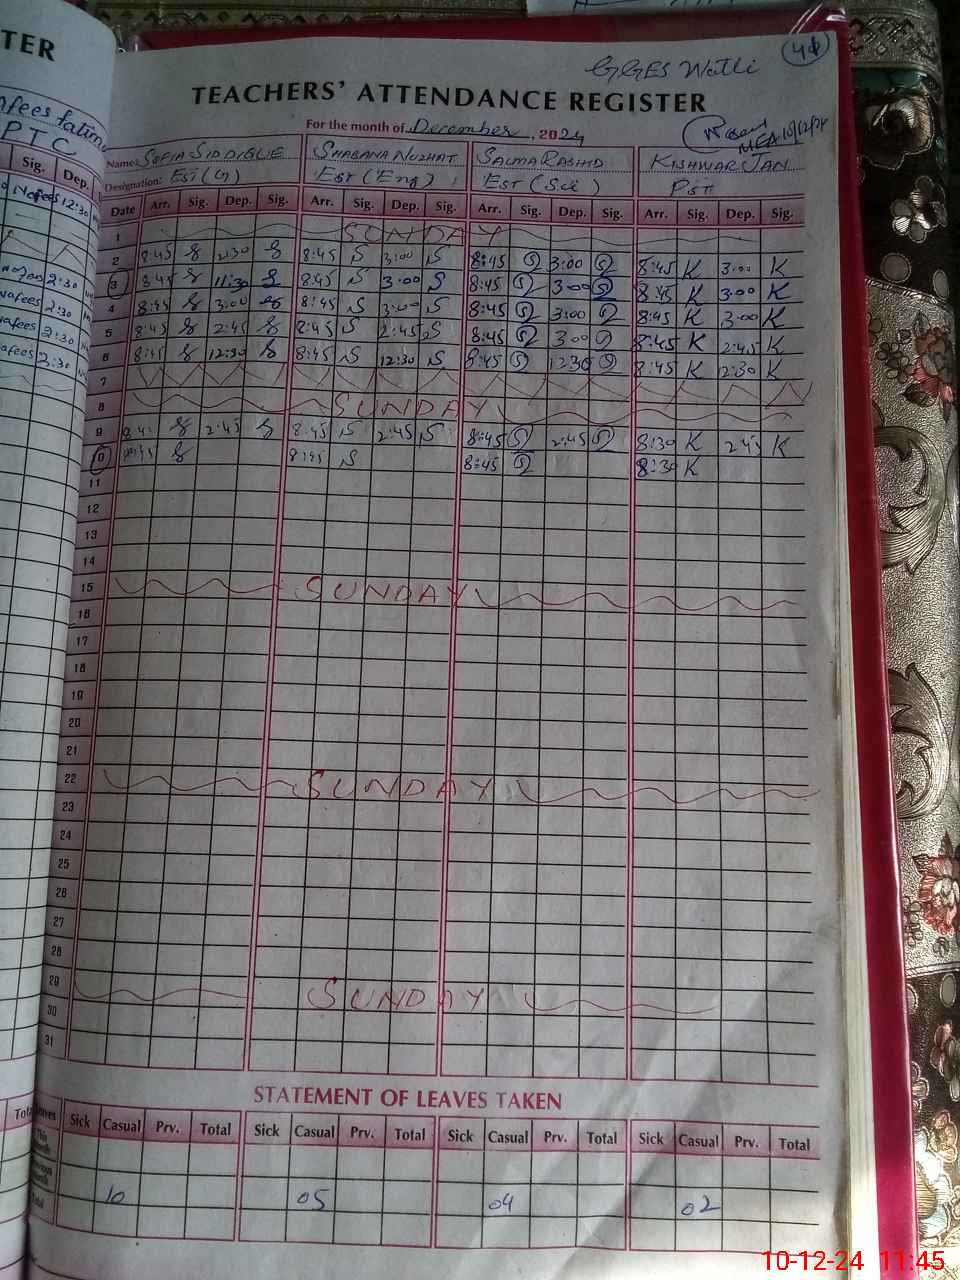 TER
PTC
Sig. Dep.
Nafees 12:30
2:30
nafees 2:30
afees 2:30
afees 2:30
41
GGES Watli
TEACHERS' ATTENDANCE REGISTER
For the month of December, 2024
MEA 10/12/24
Name: SOFIA SIDDIQUE SHABANA NUZHAT SALMA RASHID KISHWAR JAN
Designation: EST (G) EST (Eng) EST (Sci) PST
Date Arr. Sig. Dep. Sig. Arr. Sig. Dep. Sig. Arr. Sig. Dep. Sig. Arr. Sig. Dep. Sig.
1 SUNDAY
2 8:45 2:30 8:45 S 3:00 S 8:45 S 3:00 S 8:45 K 3:00 K
3 8:45 11:30 8:45 S 3:00 S 8:45 S 3:00 S 8:45 K 3:00 K
4 8:45 3:00 8:45 S 3:00 S 8:45 S 3:00 S 8:45 K 3:00 K
5 8:45 2:45 8:45 S 2:45 S 8:45 S 3:00 S 8:45 K 2:45 K
6 8:45 12:30 8:45 S 12:30 S 8:45 S 12:30 S 8:45 K 12:30 K
7
8 SUNDAY
9 8:45 2:45 8:45 S 2:45 S 8:45 S 2:45 S 8:30 K 2:45 K
10 8:45 8:45 S 8:45 S 8:30 K
11
12
13
14
15 SUNDAY
16
17
18
19
20
21
22 SUNDAY
23
24
25
26
27
28
29 SUNDAY
30
31
STATEMENT OF LEAVES TAKEN
Sick Casual Prv. Total Sick Casual Prv. Total Sick Casual Prv. Total Sick Casual Prv. Total
10 05 04 02
10-12-24 11:45